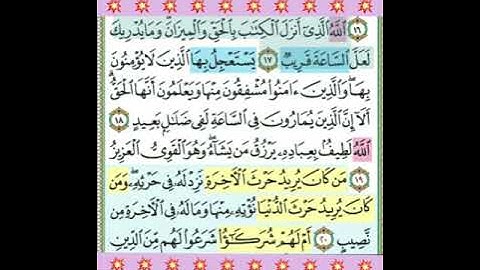 ١٦ ٱللَّهُ ٱلَّذِىٓ أَنزَلَ ٱلۡكِتَٰبَ بِٱلۡحَقِّ وَٱلۡمِيزَانَۗ وَمَا يُدۡرِيكَ
لَعَلَّ ٱلسَّاعَةَ قَرِيبٌ ١٧ يَسۡتَعۡجِلُ بِهَا ٱلَّذِينَ لَا يُؤۡمِنُونَ
بِهَاۖ وَٱلَّذِينَ ءَامَنُواْ مُشۡفِقُونَ مِنۡهَا وَيَعۡلَمُونَ أَنَّهَا ٱلۡحَقُّۗ
أَلَآ إِنَّ ٱلَّذِينَ يُمَارُونَ فِى ٱلسَّاعَةِ لَفِى ضَلَٰلِۭ بَعِيدٍ ١٨
ٱللَّهُ لَطِيفُۢ بِعِبَادِهِۦ يَرۡزُقُ مَن يَشَآءُۖ وَهُوَ ٱلۡقَوِىُّ ٱلۡعَزِيزُ
١٩ مَن كَانَ يُرِيدُ حَرۡثَ ٱلۡأٓخِرَةِ نَزِدۡ لَهُۥ فِى حَرۡثِهِۦۖ وَمَن
كَانَ يُرِيدُ حَرۡثَ ٱلدُّنۡيَا نُؤۡتِهِۦ مِنۡهَا وَمَا لَهُۥ فِى ٱلۡأٓخِرَةِ مِن
نَّصِيبٍ ٢٠ أَمۡ لَهُمۡ شُرَكَٰٓؤُاْ شَرَعُواْ لَهُم مِّنَ ٱلدِّينِ